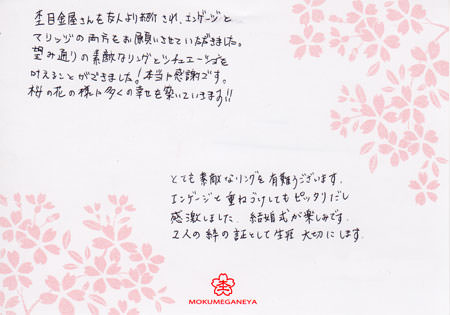 杢目金屋さんを友人よりお聞きされ、エンゲージと
マリッジの両方をお願いさせていただきました。
望み通りの素敵なリングとシチュエーションを
叶えることができました！本当に感謝です。
桜の花の様に多くの幸せを築いていきます!!
とても素敵なリングを有難うございます。
エンゲージと重ねづけしてもピッタリだし
感激しました。結婚式が楽しみです。
2人の絆の証として生涯大切にします。
MOKUMEGANEYA